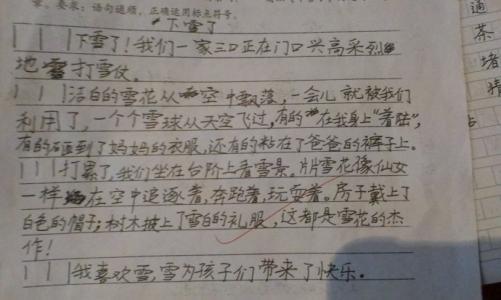 求：语句通顺，正确运用标点符号。
下雪了
下雪了！我们一家三口正在门口兴高采烈
地打雪仗。
洁白的雪花从空中飘落，一会儿就被我们
利用了，一个个雪球从天空飞过，有的在我身上“着陆”，
有的砸到了妈妈的衣服，还有的粘在了爸爸的裤子上。
打累了，我们坐在台阶上看雪景。片片雪花像仙女
一样在空中追逐着，奔跑着，玩耍着。房子戴上了
白色的帽子；树木披上了雪白的礼服，这都是雪花的杰
作！
我喜欢雪，雪为孩子们带来了快乐。
茶
堵